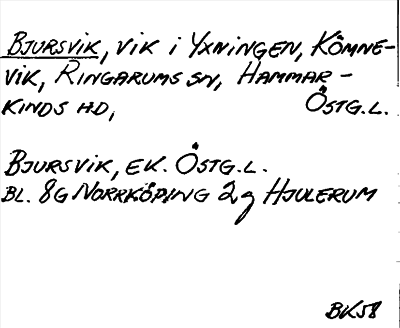 Bjursvik, vik i Yxningen, Kömne-
vik, Ringarums sn, Hammar-
kinds hd, Östg.l.
Bjursvik, ek. Östg.l.
Bl. 8G Norrköping 2g Hjulerum
BK58